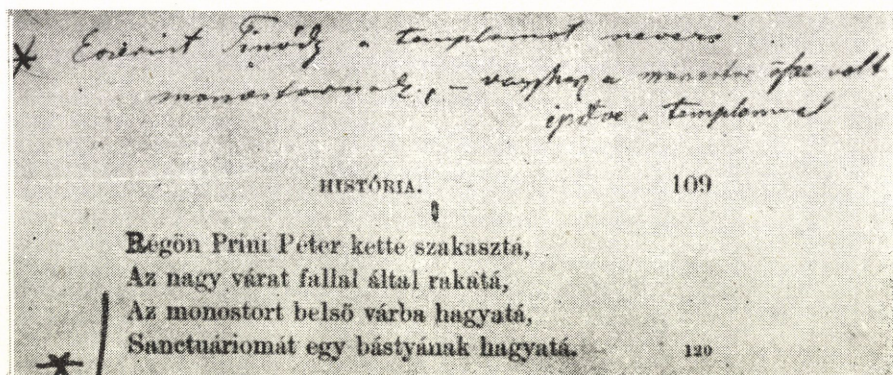 * Eszerint Tinódy a templomot nevezi
monostornak, – vagyhogy a monostor össze volt
építve a templommal
HISTÓRIA. 109
Régön Prini Péter ketté szakasztá,
Az nagy várat fallal által rakatá,
Az monostort belső várba hagyatá,
* Sanctuáriomát egy bástyának hagyatá. 120